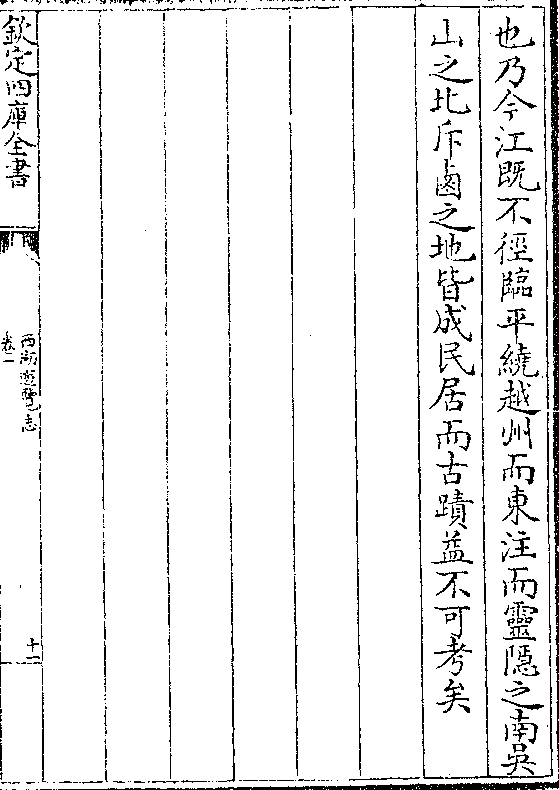 也乃今江既不徑臨平繞越州而東注而靈隱之南吳
山之北斥鹵之地皆成民居而古蹟益不可考矣
欽定四庫全書
西湖遊覽志
卷二
十一